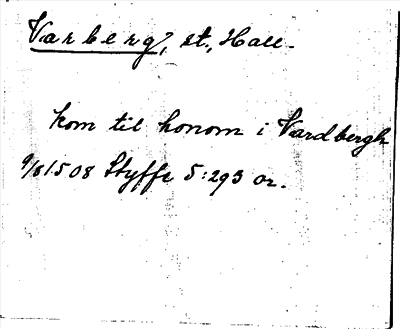 Varberg, st., Hall.
kom til honom i Vardbergh
9/8 1508 Styffe 5:293 or.